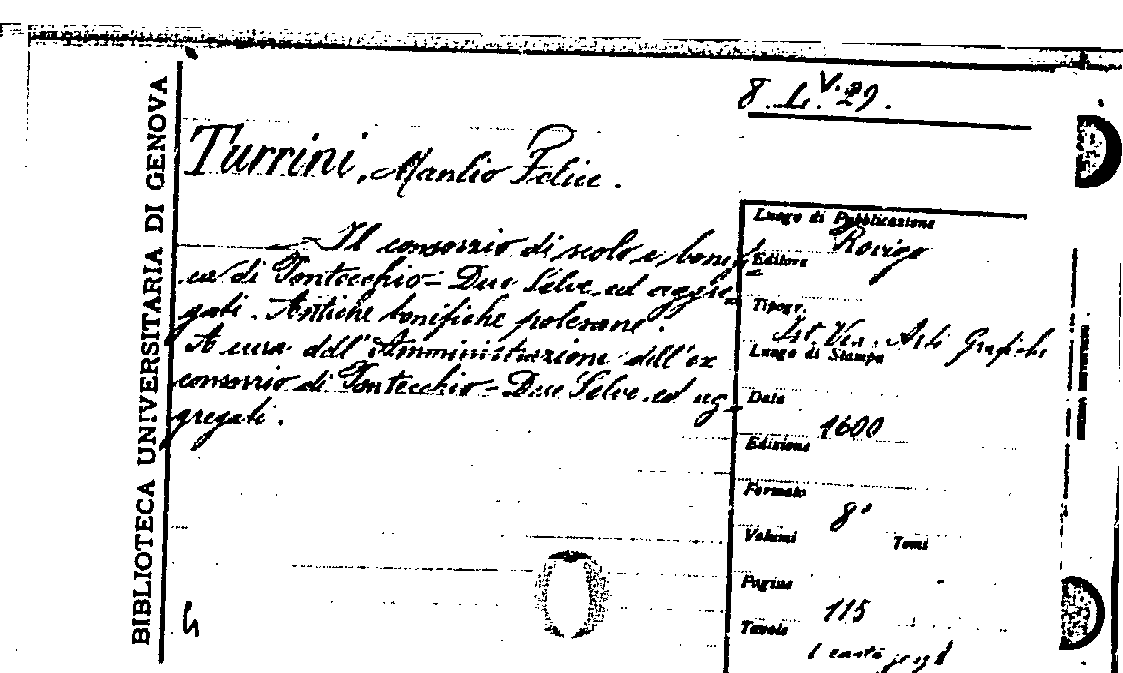 8. L. V. 29.
BIBLIOTECA UNIVERSITARIA DI GENOVA
Turrini, Manlio Felice.
Il consorzio di scolo e bonifi=
ca di Pontecchio-Due Selve ed aggre=
gati. Antiche bonifiche polesane.
A cura dell'Amministrazione dell'ex
consorzio di Pontecchio-Due Selve ed ag=
gregati.
Luogo di Pubblicazione
Rovigo
Editore
Tipogr.
Ist. Ven. Arti Grafiche
Luogo di Stampa
Data
1600
Edizione
Formato
8°
Volumi Tomi
Pagine
115
Tavole
1 carta